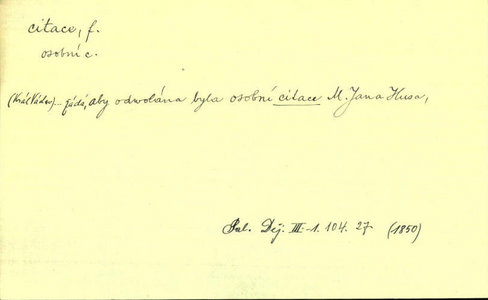 citace, f.
osobní c.
(Král Václav)... žádá, aby odwolána byla osobní citace M. Jana Husa,
Pal. Děj. III-1. 104. 27 (1850)